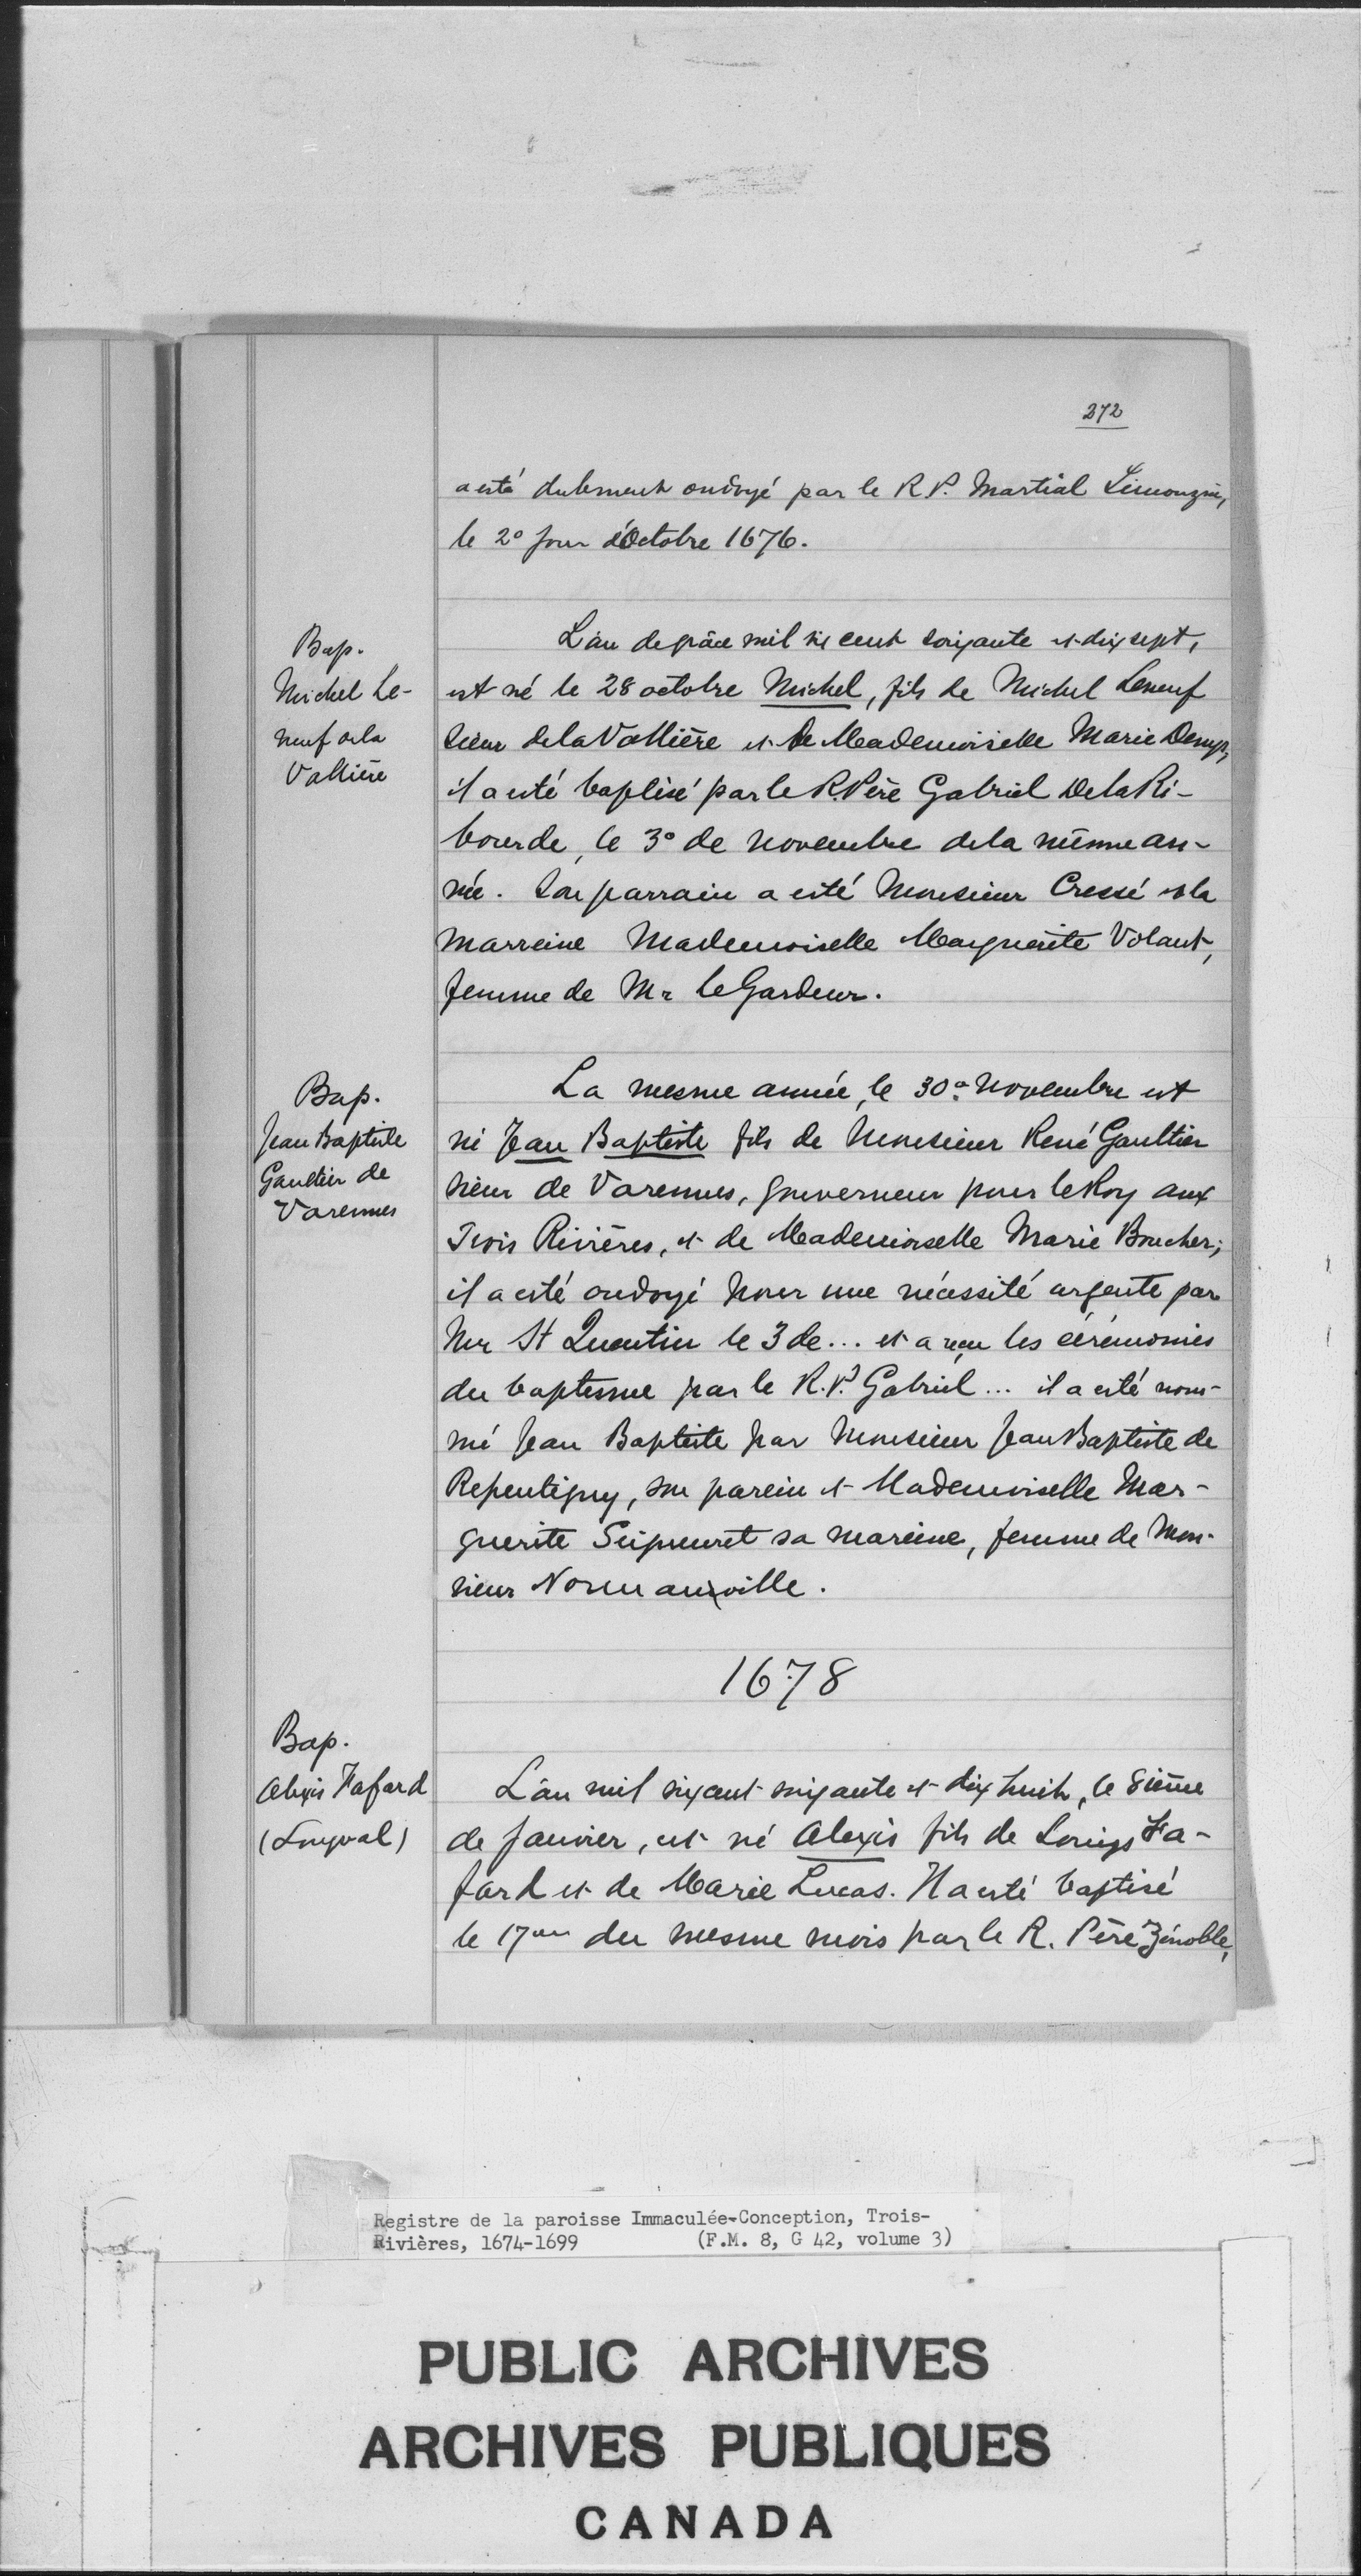 272
a esté dubement ondoyé par le R P. Martial Limouzin,
le 2º jour d'Octobre 1676.
Bap.
Michel Le-
neuf de la
Vallière
L'an de grâce mil six cent soixante et dix sept,
est né le 28 octobre Michel, fils de Michel Leneuf
Sieur de la Vallière et de Mademoiselle Marie Denys,
il a esté baptisé par le R. Père Gabriel De la Ri-
bourde, le 3º de novembre de la mesme an-
née. Son parrain a esté Monsieur Cressé et la
marreine Mademoiselle Marguerite Volant,
femme de Mr Le Gardeur.
Bap.
Jean Baptiste
Gaultier de
Varennes
La mesme année, le 30º novembre est
né Jean Baptiste fils de Monsieur René Gaultier
sieur de Varennes, gouverneur pour le Roy aux
Trois Rivières, et de Mademoiselle Marie Boucher;
il a esté ondoyé pour une nécessité urgente par
Mr St Quentin le 3 de ... et a reçu les cérémonies
du baptesme par le R. P. Gabriel ... il a esté nom-
mé Jean Baptiste par Monsieur Jean Baptiste de
Repentigny, son parein et Mademoiselle Mar-
guerite Seigneuret sa mareine, femme de Mon-
sieur Normanville.
1678
Bap.
Alexis Fafard
(Longval)
L'an mil six cent soixante et dix huit, le 8ième
de Janvier, est né Alexis fils de Louiys Fa-
fard et de Marie Lucas. Il a esté baptisé
le 17me du mesme mois par le R. Père Zénoble,
Registre de la paroisse Immaculée-Conception, Trois-
Rivières, 1674-1699 (F.M. 8, G 42, volume 3)
PUBLIC ARCHIVES
ARCHIVES PUBLIQUES
CANADA